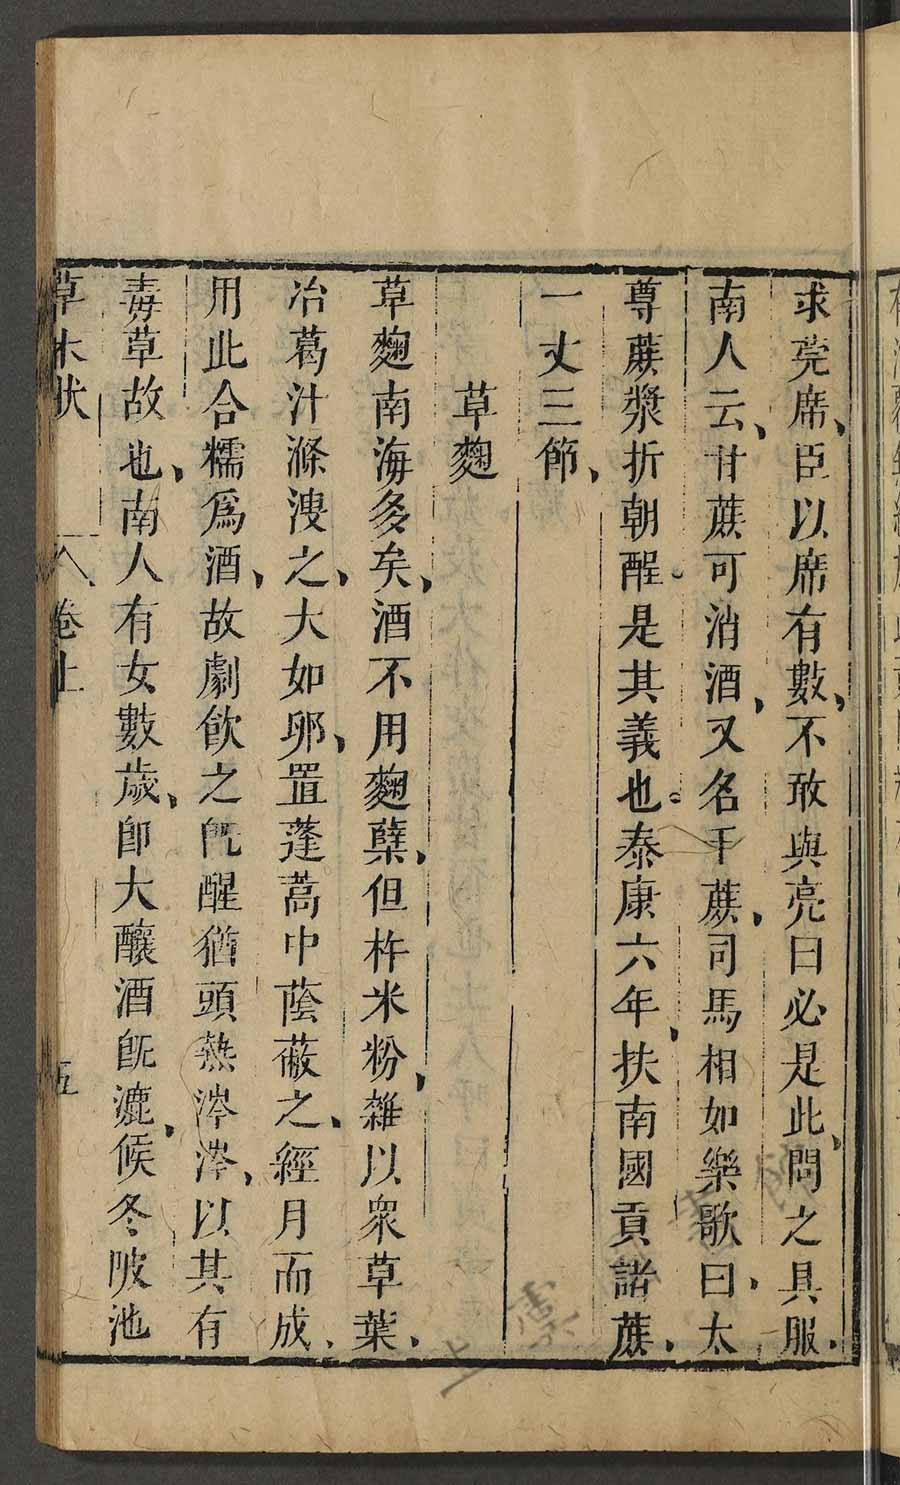 求莞席臣以席有數不敢與亮曰必是此問之具服
南人云甘蔗可消酒又名干蔗司馬相如樂歌曰太
尊蔗漿折朝酲是其義也泰康六年扶南國貢諸蔗
一丈三節
草麴
草麴南海多矣酒不用麴蘖但杵米粉雜以衆草葉
冶葛汁滌溲之大如卵置蓬蒿中蔭蔽之經月而成
用此合糯爲酒故劇飲之旣醒猶頭熱涔涔以其有
毒草故也南人有女數歲卽大釀酒旣漉候冬陂池
草木狀 卷上 五